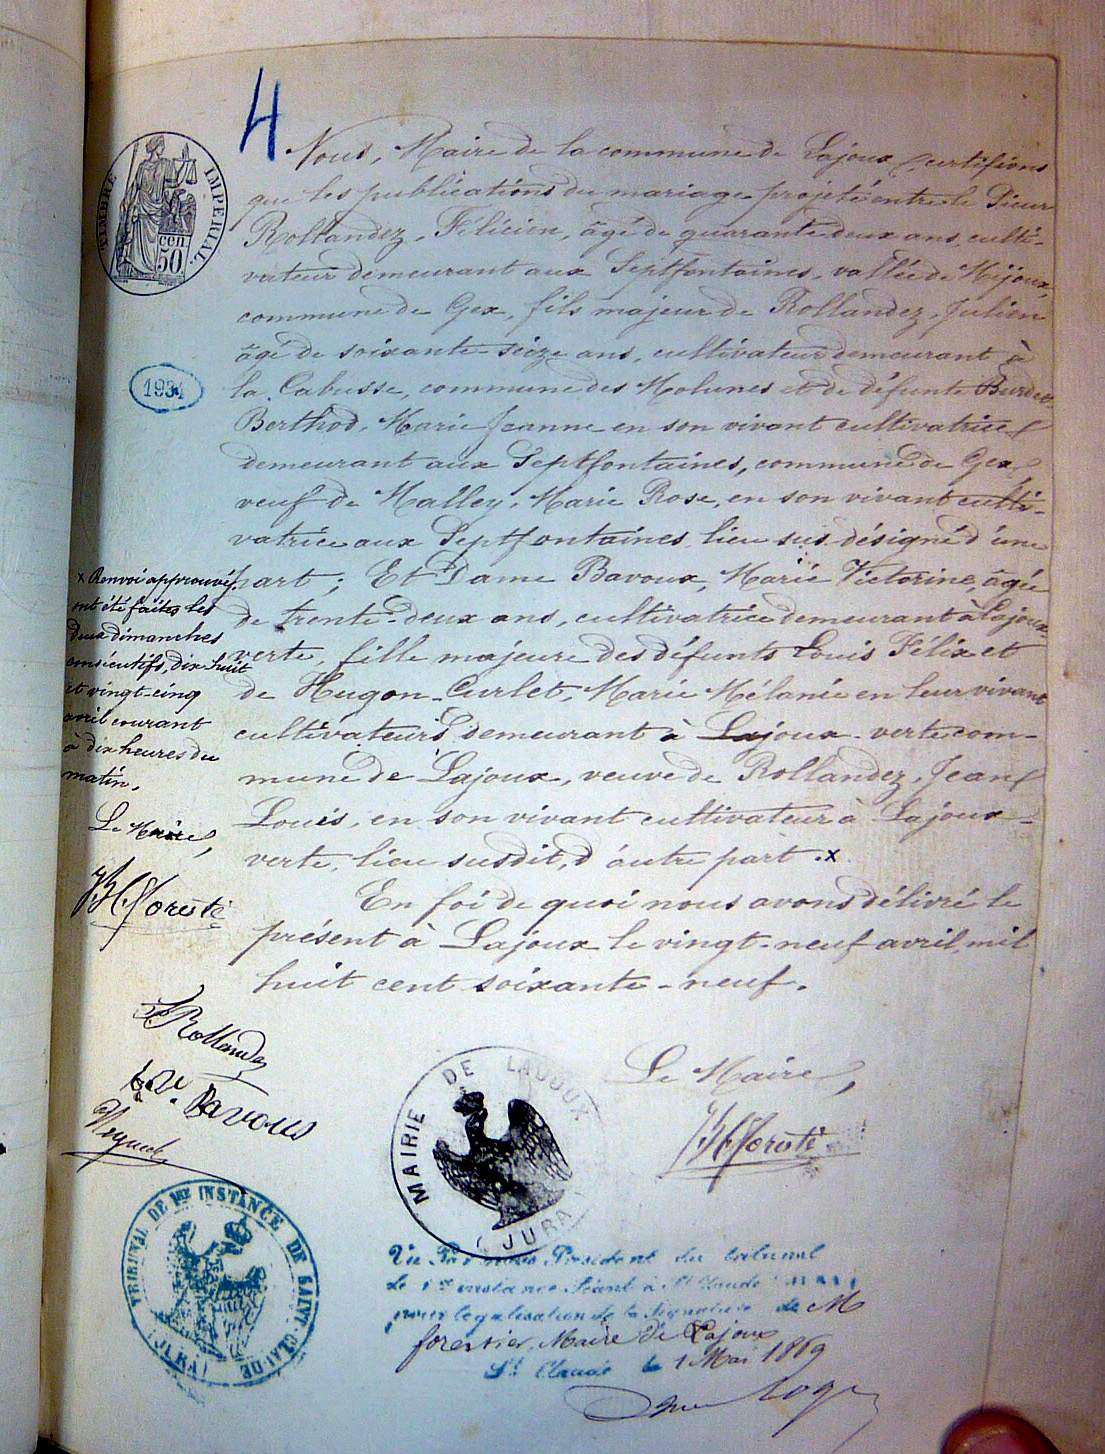 4
TIMBRE IMPERIAL
cen
50
1934
Nous, Maire de la commune de Lajoux, certifions
que les publications du mariage projeté entre le Sieur
Rollandez, Félicien, âgé de quarante deux ans, culti-
vateur demeurant aux Septfontaines, vallée de Mijoux,
commune de Gex, fils majeur de Rollandez, Julien
âgé de soixante-seize ans, cultivateur demeurant à
la Cabusse, commune des Molunes et de défunte Burdet
Berthod, Marie Jeanne en son vivant cultivatrice
demeurant aux Septfontaines, commune de Gex,
veuf de Malley, Marie Rose, en son vivant culti-
vatrice aux Septfontaines, lieu sus désigné d'une
part; Et Dame Bavoux, Marie Victorine, âgée
de trente-deux ans, cultivatrice demeurant à Lajoux
verte, fille majeure des défunts Louis Félix et
de Hugon-Curlet, Marie Mélanie en leur vivant
cultivateurs demeurant à Lajoux-verte com-
mune de Lajoux, veuve de Rollandez, Jean
Louis, en son vivant cultivateur à Lajoux-
verte, lieu susdit, d'autre part. x
x Renvoi approuvé
ont été faites les
deux dimanches
consécutifs, dix huit
et vingt-cinq
avril courant
à dix heures du
matin.
Le Maire,
En foi de quoi nous avons délivré le
présent à Lajoux le vingt-neuf avril, mil
huit cent soixante-neuf.
Rollandez
Bavoux
Le Maire,
MAIRIE DE LAJOUX
(JURA)
TRIBUNAL DE 1re INSTANCE DE SAINT-CLAUDE
(JURA)
Vu Par nous Président du tribunal
de 1re instance Séant à St Claude (JURA)
pour légalisation de la Signature de M
forestier, Maire de Lajoux
St Claude le 1 Mai 1869